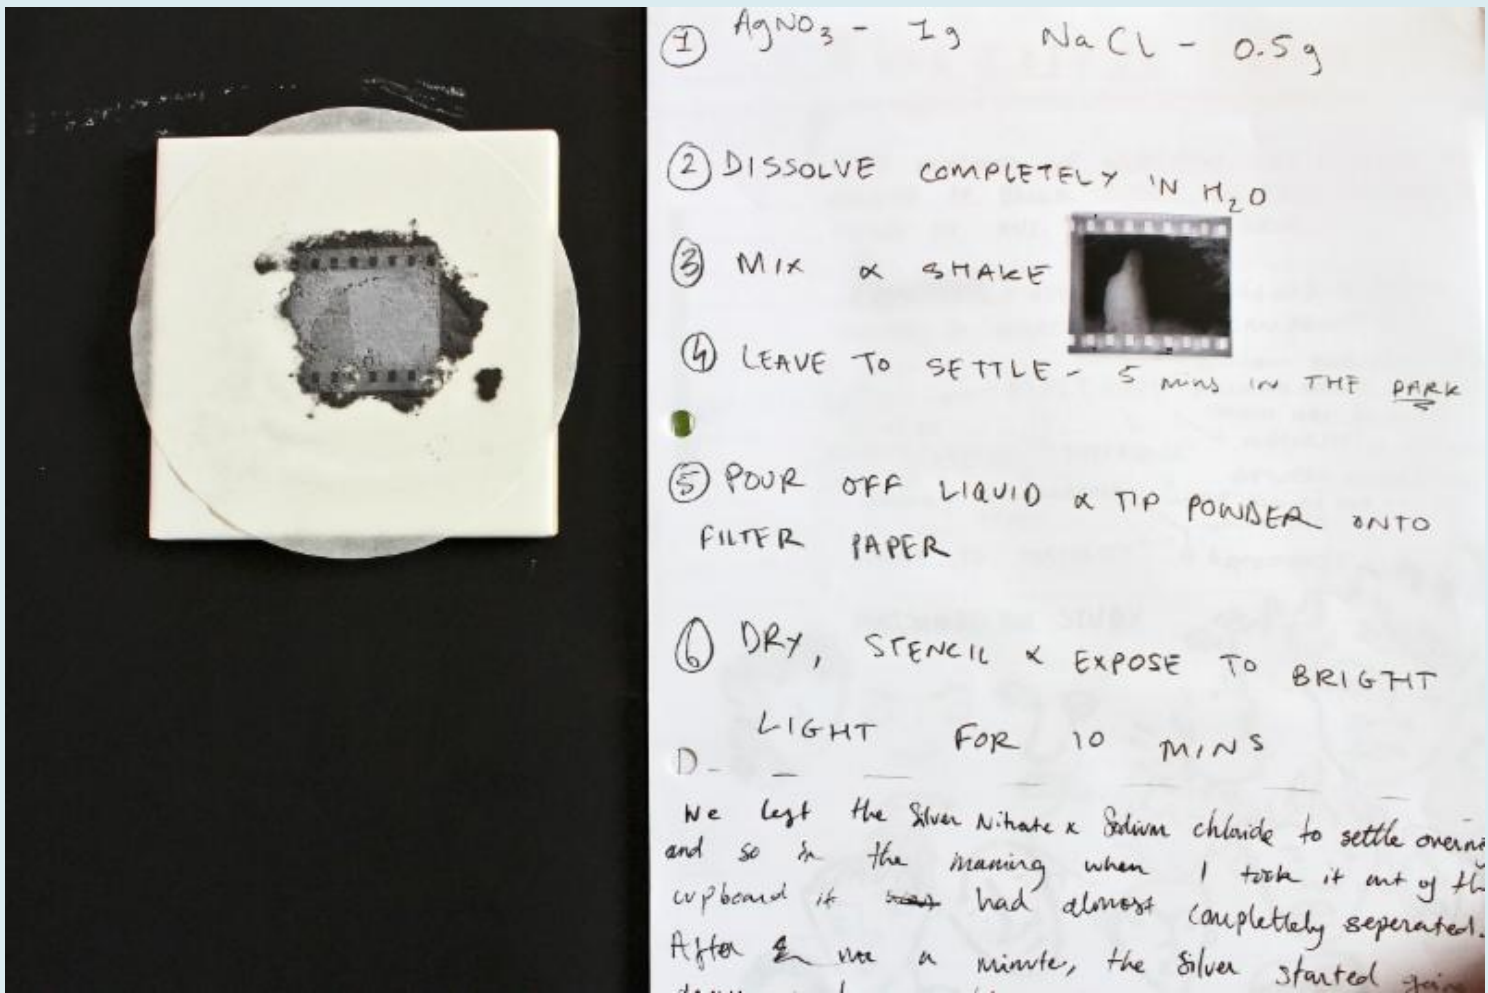 ① AgNO₃ - 1g NaCl - 0.5g
② DISSOLVE COMPLETELY IN H₂O
③ MIX & SHAKE
④ LEAVE TO SETTLE - 5 mins IN THE PARK
⑤ POUR OFF LIQUID & TIP POWDER ONTO
FILTER PAPER
⑥ DRY, STENCIL & EXPOSE TO BRIGHT
LIGHT FOR 10 MINS
D
We left the Silver Nitrate & Sodium chloride to settle
and so in the morning when I took it out of
cupboard it had almost completely seperated.
After a minute, the silver started